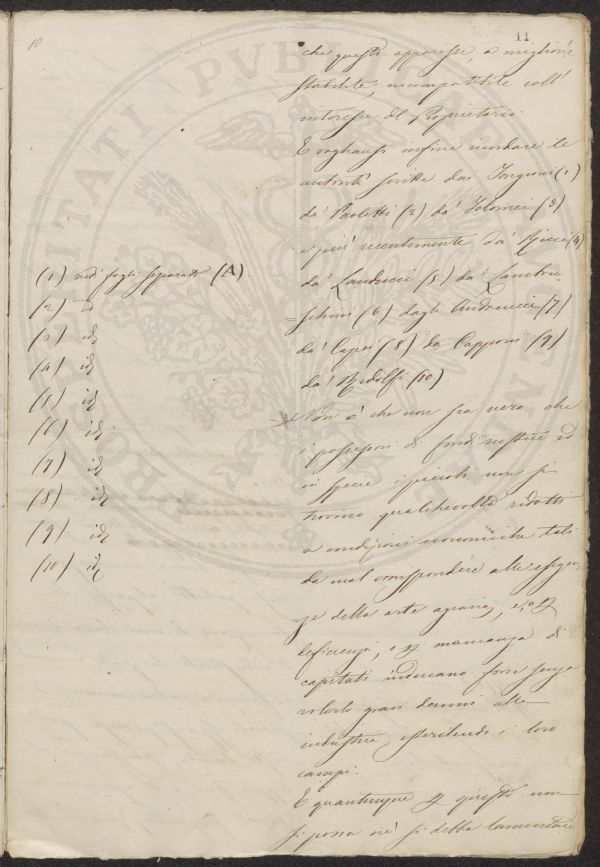 10
11
che questo apparisse, a migliorie
stabilite, incompatibile coll'
interesse del Proprietario.
E vogliansi infine ricordare le
autorità scritte dai Targioni (1)
da' Paoletti (2) da' Tolomei (3)
e più recentemente da' Ricci (4)
da' Landucci (5) da' Lambru
=schini (6) dagli Andreucci (7)
da' Capei (8) da Capponi (9)
da' Ridolfi (10).
Non è che non sia vero, che
i possessori di fondi rustici ed
in specie i piccoli non si
trovino qualchevolta ridotti
a condizioni economiche tali
da mal corrispondere alle esigen
ze della arte agraria, e, o
deficienza, o mancanza di
capitali inducano forse senza
volerlo gravi danni alla
industria, isterilendo i loro
campi.
E quantunque questo non
si possa nè si debba lamentare
(1) vedi foglio separato (A)
(2) id
(3) id
(4) id
(5) id
(6) id
(7) id
(8) id
(9) id
(10) id
PROSPERITATI PUBLICAE AUGENDAE